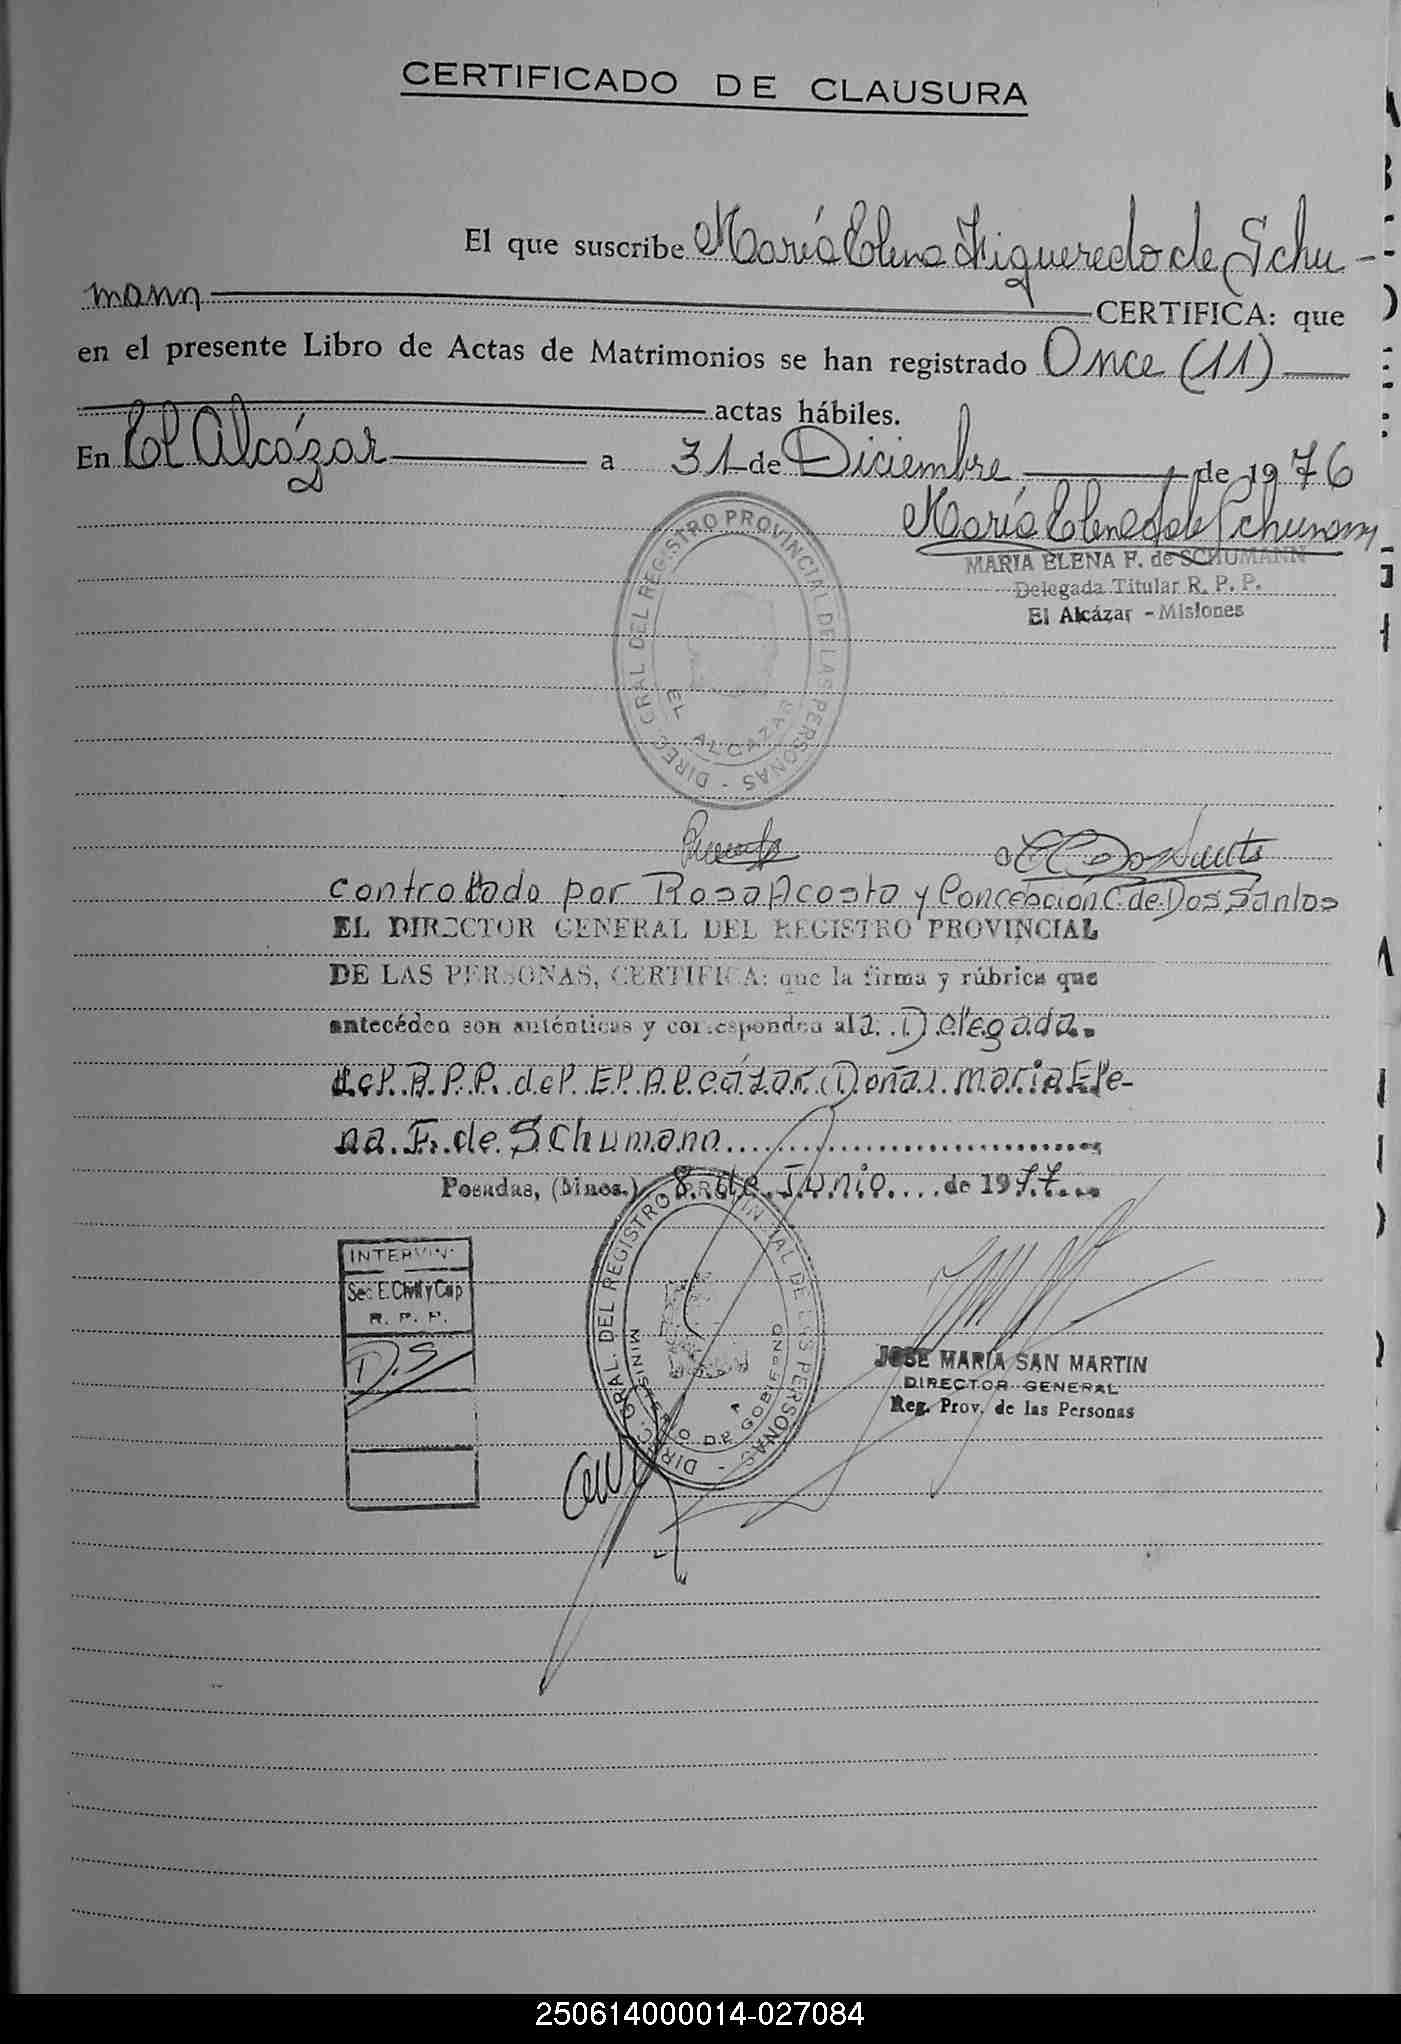 CERTIFICADO DE CLAUSURA
El que suscribe María Elena Figueredo de Schu-
mann CERTIFICA: que
en el presente Libro de Actas de Matrimonios se han registrado Once (11)
actas hábiles.
En El Alcázar a 31 de Diciembre de 1976
María Elena F de Schumann
MARIA ELENA F. de SCHUMANN
Delegada Titular R. P. P.
El Alcázar - Misiones
DIREC. GRAL. DEL REGISTRO PROVINCIAL DE LAS PERSONAS -
EL ALCAZAR
controlado por Rosa Acosta y Concepción C. de Dos Santos
EL DIRECTOR GENERAL DEL REGISTRO PROVINCIAL
DE LAS PERSONAS, CERTIFICA: que la firma y rúbrica que
anteceden son auténticas y corresponden al a Delegada
del R.P.P. del El Alcázar Doña: María Ele-
na F. de Schumann
Posadas, (Mnes.) 8 de Junio de 1977
INTERVINO
Sec E. Civil y Cap
R. P. P.
D.S
DIREC. GRAL. DEL REGISTRO PROVINCIAL DE LAS PERSONAS -
MINISTERIO DE GOBIERNO
JOSE MARIA SAN MARTIN
DIRECTOR GENERAL
Reg. Prov. de las Personas
250614000014-027084